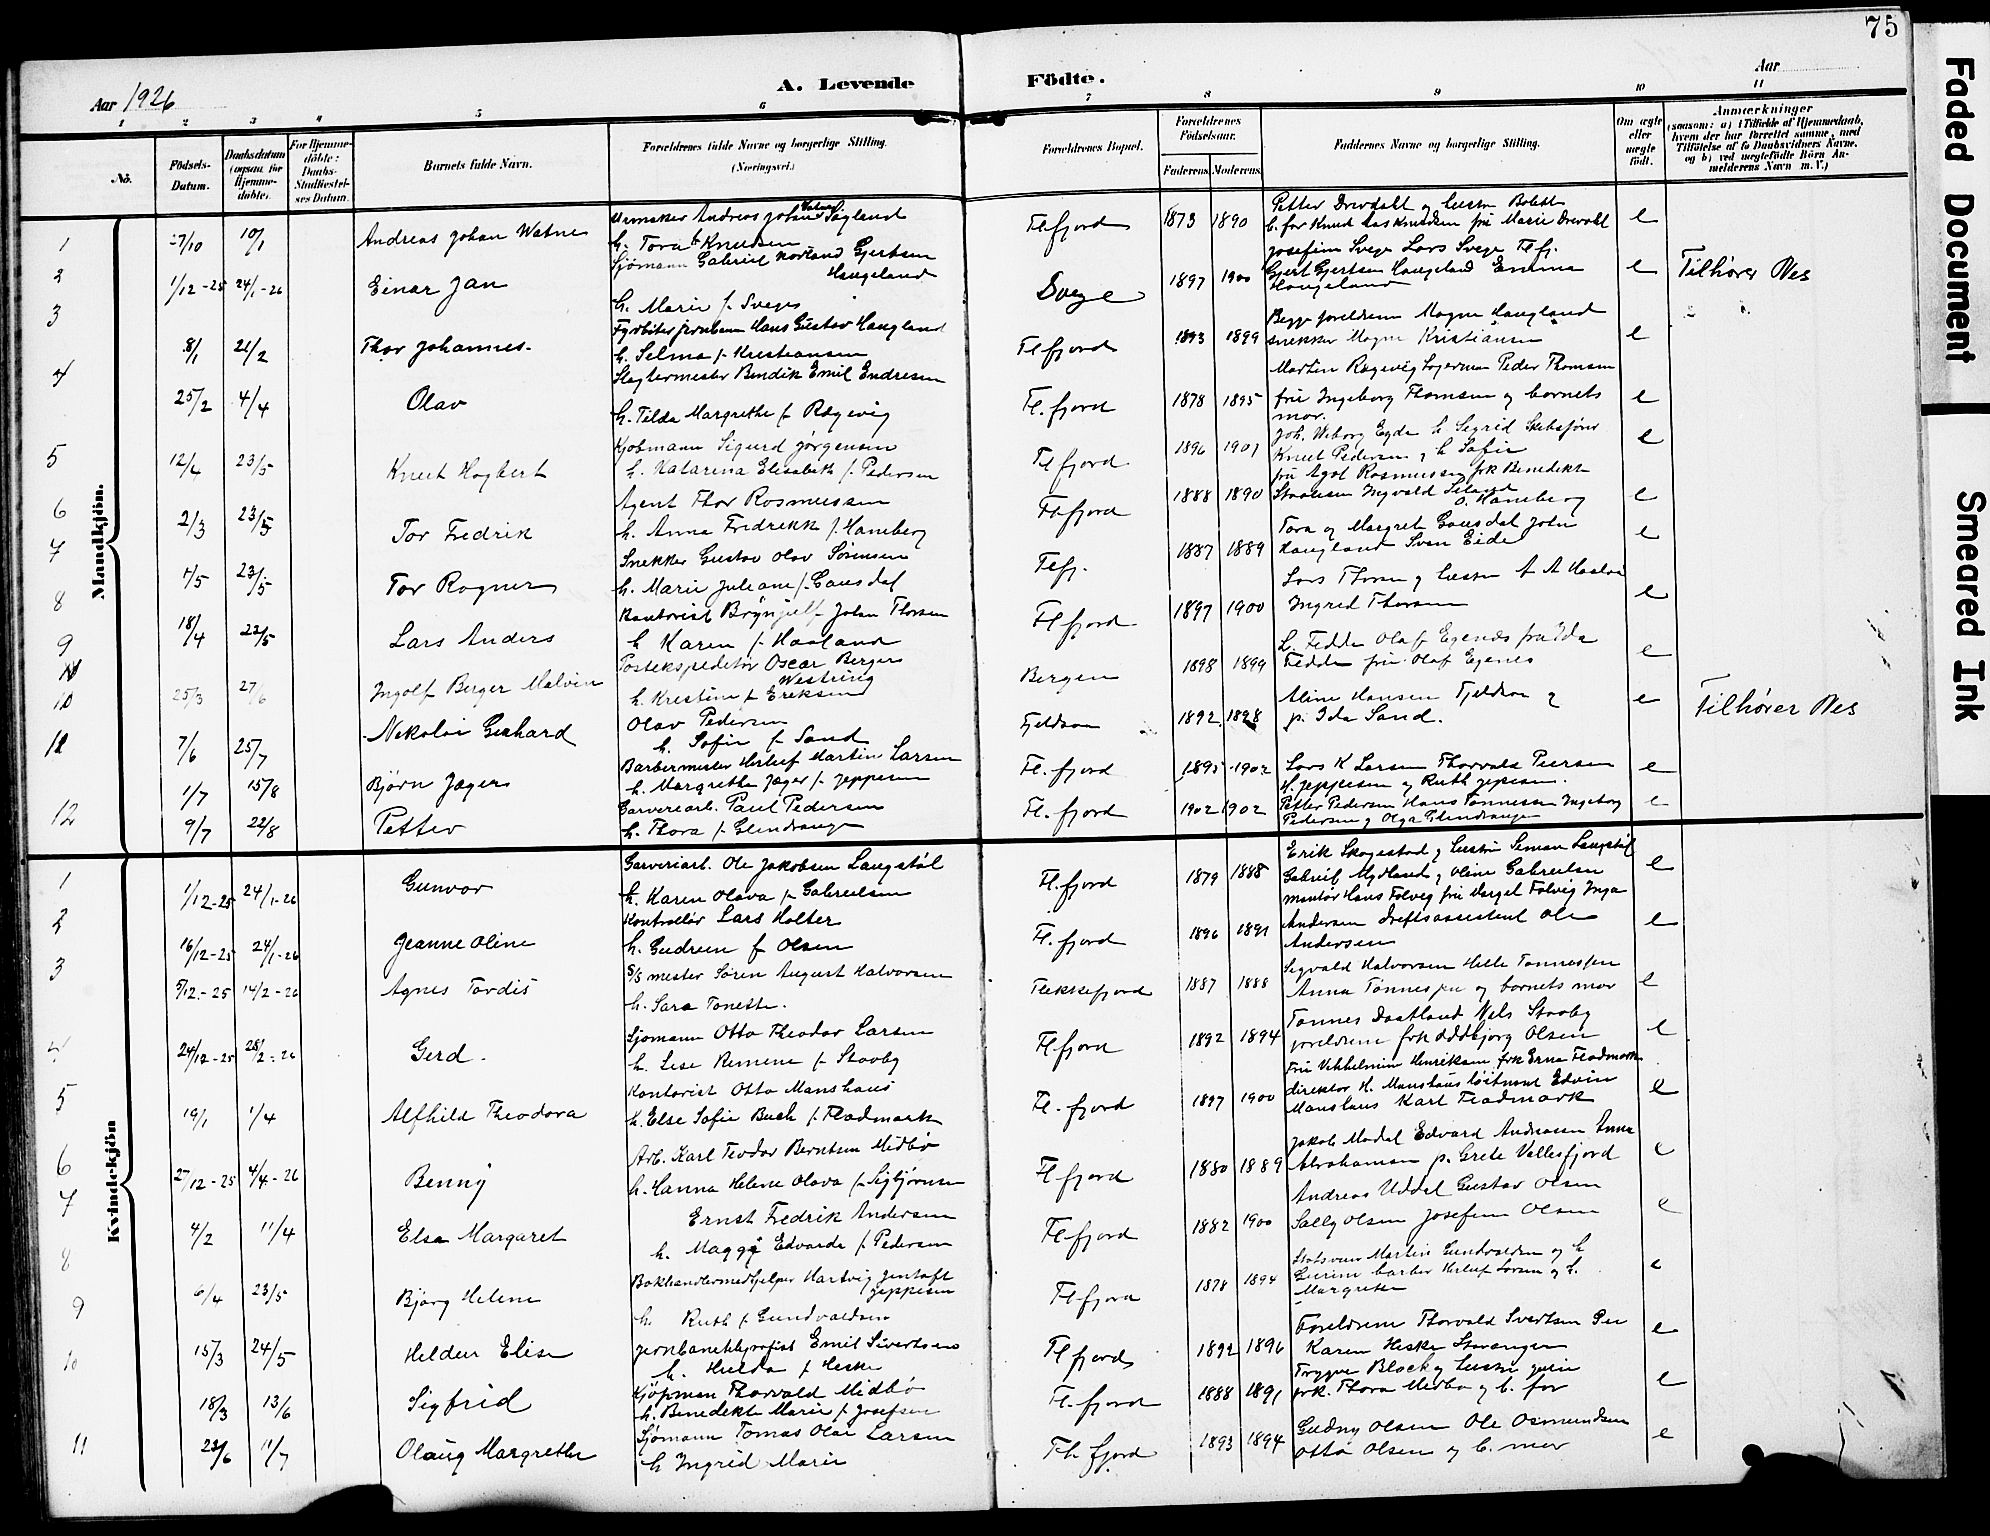 75
Faded Document Smeared Ink
A. Levende Födte.
Aar 1926
Aar
1 2 3 4 5 6 7 8 9 10 11
No.
Födsels-Datum.
Daabsdatum (ogsaa for Hjemmedøbte).
For Hjemmedöbte: Daabs-Stadfæstelses Datum.
Barnets fulde Navn.
Forældrenes fulde Navne og borgerlige Stilling. (Næringsvei.)
Forældrenes Bopæl.
Forældrenes Födselsaar.
Faderens. Moderens.
Faddernes Navne og borgerlige Stilling.
Om ægte eller uægte födt.
Anmærkninger
(saasom: a) i Tilfælde af Hjemmedaab, hvem der har forrettet samme, med Tilföielse af to Daabsvidners Navne, og b) ved uægtefödte Börn Anmelderens Navn m. V.)
Mandkjön.
1 27/10 10/1 Andreas Johan Watne
Urmaker Andreas Johan Watne Søgland
h. Tora f. Knudsen
Flefjord 1873 1890
Petter Drevdalt og hustru Bolette
b. far Knud Aas Knudsen fru Marie Drevdal e
2 1/12-25 24/1-26 Einar Jan
Sjömann Gabriel Nordland Gjertsen Haugeland
h. Marie f. Svege
Svege 1897 1900
Josefine Svege Lars Svege Flfj.
Gjert Gjertsen Haugeland Emma Haugeland e Tilhører Nes
3 8/1 21/2 Thor Johannes.
Hans Gustav Haugland
h. Selma f. Kristiansen
Flefjord 1893 1899
Begge foreldrene Magne Haugland
snekker Magne Kristiansen e
4 25/2 4/4 Olav
Slagtermester Bendik Emil Endresen
h. Tilda Margrethe f. Rægevig
Fl. fjord 1878 1895
Martin Rægevig Peder Thomsen
fru Ingeborg Thomsen og barnets mor. e
5 12/4 23/5 Knut Hagbert
Kjøbmann Sigurd Jørgensen
h. Katarina Elisabeth f. Pedersen
Flfjord 1896 1901
Joh. Weborg Egde h. Sigrid
Knut Pedersen og h. Sofie e
6 2/3 23/5 Tor Fredrik
Agent Thor Rasmussen
h. Anna Fredrikke f. Haneberg
Flfjord 1888 1890
fru Agot Rasmussen frk Benedikte
Ingvald Seland O. Haneberg e
7 23/5 Tor Ragner
Snekker Gustav Olav Sørensen
h. Marie Juliane f. Gausdal
Flfj. 1887 1889
Tora og Margret Gausdal John
Haugland Sven Eide e
8 18/4 23/5 Lars Anders
Kontorist Brynjulf Johan Thorsen
h. Karen f. Haaland
Flfjord 1897 1900
Lars Thorsen og hustru A A Haaland
Ingrid Thorsen e
9 25/3 27/6 Ingolf Berger Malvin
Postekspeditør Oscar Berger Westring
h. Kristine f. Eriksen
Bergen 1898 1899
L. Fedde Olaf Egenes fru Ida
Fedde fru Olaf Egenes e
10 7/6 25/7 Nikolai Gerhard
Olav Pedersen
h. Sofie f. Sand
Fjeldsaa 1892 1898
Aline Hansen Fjeldsaa og
p. Ida Sand. e Tilhører Nes
11 1/7 15/8 Bjørn Jæger
Barbermester Herleif Martin Larsen
h. Margrethe Jæger f. Jeppesen
Fl. fjord 1895 1902
Lars K Larsen Thorvald Peersen
H. Jeppesen og Ruth Jeppesen. e
12 9/7 22/8 Petter
Garveriarb. Paul Pedersen
h. Thora f. Glendrange
Fl. fjord 1902 1902
Petter Pedersen Hans Tønnessen Ingeborg
Pedersen og Olga Glendrange e
Kvindekjön
1 1/12-25 24/1-26 Gunvor
Garveriarb. Ole Jakobsen Langstøl
h. Karen Olava f. Gabrielsen
Fl. fjord 1879 1888
Erik Skogestad og hustru Simon Langstøl
Gabriel Mydland og Oline Gabrielsen e
2 16/12-25 24/1-26 Jeanne Oline
Kontrollør Lars Holter
h. Gudrun f. Olsen
Fl. fjord 1896 1891
Montør Hans Følvig fru Margot Følvig Inga
Andersen driftsassistent Ole
Andersen e
3 5/12-25 14/2-26 Agnes Tordis
S/S mester Søren August Halvorsen
h. Sara Tonette.
Flekkefjord 1887 1888
Sigvald Halvorsen Helle Tønnessen
Anna Tønnessen og barnets mor e
4 24/12-25 28/2-26 Gerd.
Sjömann Otto Theodor Larsen
h. Lise Remene f. Staaby
Flfjord 1892 1894
Tønnes Daatland Nels Staaby
foreldrene frk Oddbjørg Olsen e
5 19/1 1/4 Alfhild Theodora
Kontorist Otto Manshaus
h. Else Sofie Buch f. Flødmark
Fl. fjord 1897 1900
Fru Vilhelmine Henriksen frk Erna Flødmark
direktør H. Manshaus løitnant Edvin
Manshaus Karl Flødmark e
6 27/12-25 4/4-26 Benny
Arb. Karl Teodor Berntsen Midbø
h. Hanna Helene Olava f. Sigbjørnsen
Flfjord 1880 1889
Jakob Modal Edvard Andreasen Anna
Abrahamsen p. Grete Vollesfjord e
7 4/2 11/4 Elsa Margaret
Ernst Fredrik Andersen
h. Maggy Edvarda f. Pedersen
Flfjord 1882 1900
Andreas Uddal Gustav Olsen
Sally Olsen Josefine Olsen e
8 6/4 23/5 Bjørg Helene
Bokhandlermedhjelper Hartvig Jentoft Jeppesen
h. Ruth f. Gundvaldsen
Flfjord 1878 1894
Martin Gundvaldsen og h.
barber Herleif Larsen og h.
Margrethe e
9 15/3 24/5 Heldur Elise
Jernbanetelegrafist Emil Sivertsen
h. Hulda f. Heske
Flfjord 1892 1896
Foreldrene Thorvald Svertsen
Karen Heske Stavanger e
10 18/3 13/6 Sigfrid
Kjøpman Thorvald Midbø
h. Benedikte Marie f. Josefsen
Fl. fjord 1888 1891
Trygve Block og hustru
frk. Thora Midbø og b. far e
11 23/6 11/7 Olaug Margrethe
Sjømann Tomas Olai Larsen
h Ingrid Marie
Fl. fjord 1893 1894
Gudny Olsen Ole Osmundsen
Otto Olsen og b. mor e